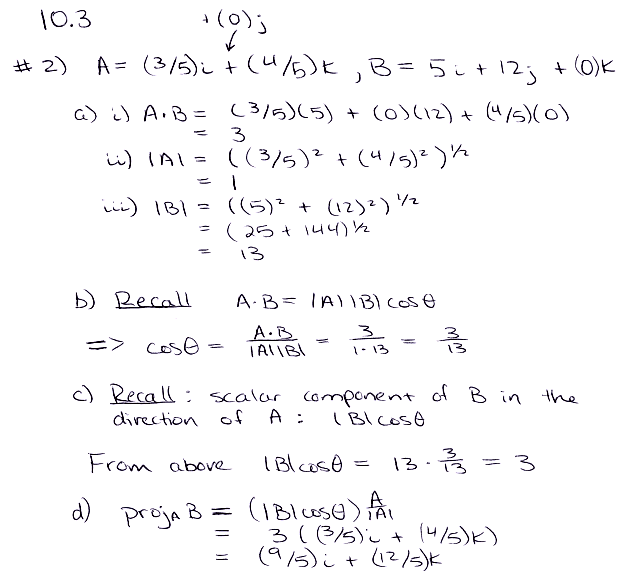 10.3
+(0)j
#2) A = (3/5)i + (4/5)k , B = 5i + 12j + (0)k
a) i) A·B = (3/5)(5) + (0)(12) + (4/5)(0)
= 3
ii) |A| = ((3/5)² + (4/5)²)^½
= 1
iii) |B| = ((5)² + (12)²)^½
= (25 + 144)^½
= 13
b) Recall A·B = |A||B|cosθ
=> cosθ = A·B/|A||B| = 3/1·13 = 3/13
c) Recall : scalar component of B in the
direction of A : |B|cosθ
From above |B|cosθ = 13 · 3/13 = 3
d) proj_A B = (|B|cosθ) A/|A|
= 3((3/5)i + (4/5)k)
= (9/5)i + (12/5)k